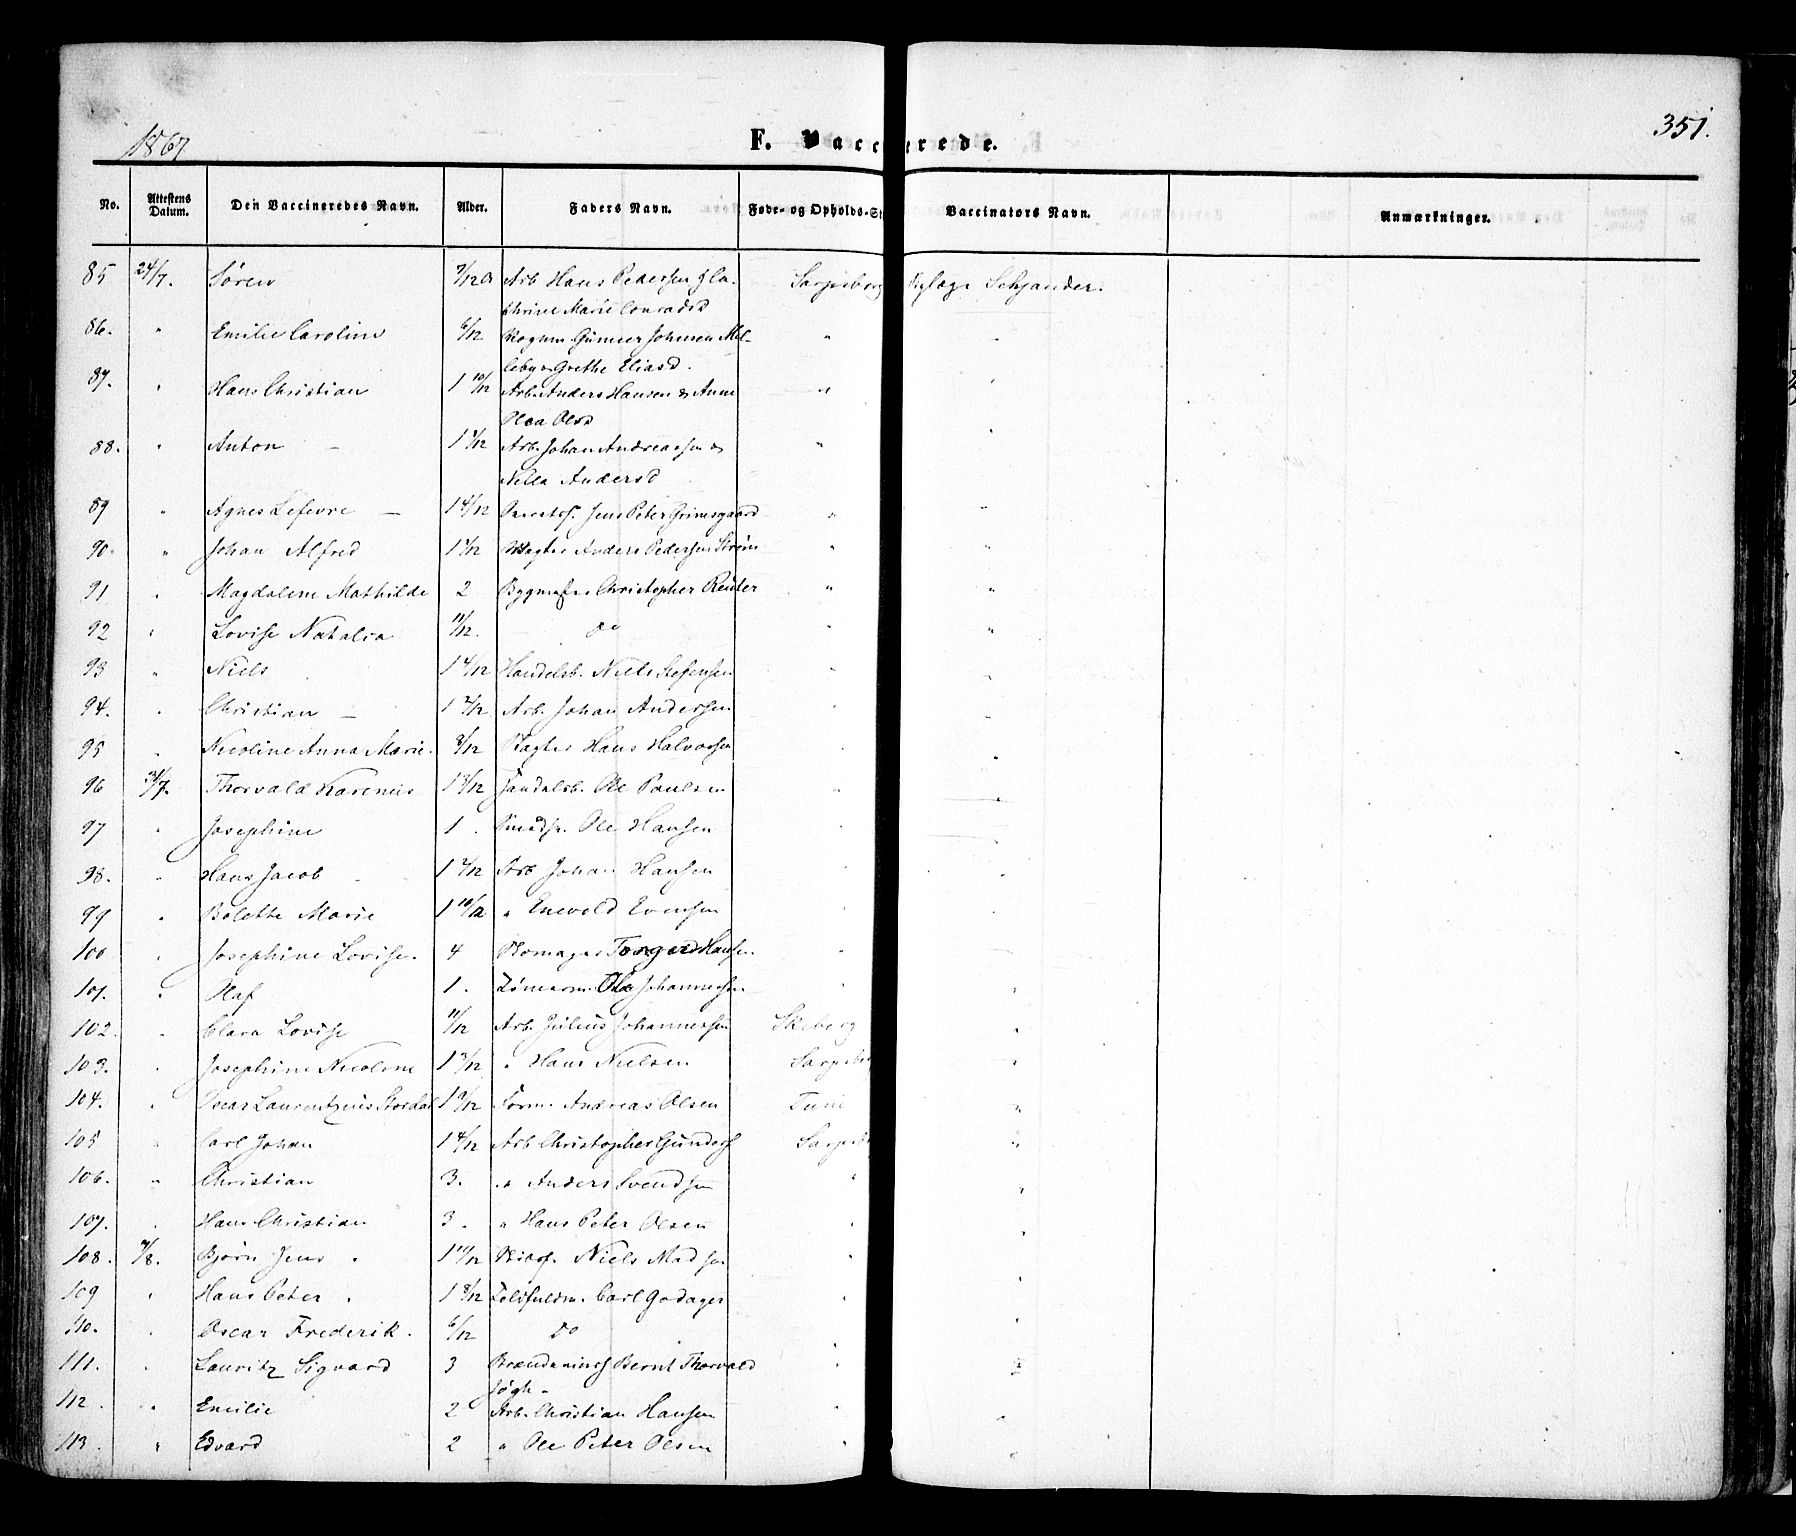 1867
F. Vaccinerede.
351.
No. Attestens Datum. Den Vaccineredes Navn. Alder. Faders Navn. Føde- og Opholds-St Vaccinators Navn. Anmærkninger.
85 24/7. Søren 7/12 Arb Hans Pedersen & Ca- Sarpsborg Schjander.
thrine Marie Conradsd
86. " Emilie Caroline 6/12 Gunder Johnsen Mel- "
leby & Grethe Eliasd.
87. " Hans Christian 1 10/12 Arb. Anders Hansen & Anne "
Olea Olsd
88. " Anton - Arb. Johan Andreassen & "
Nella Andersd
89 " Agnes Lefevre - 1 4/12 Jens Peter Grimsgaard "
90. " Johan Alfred Anders Pedersen Strøm "
91 " Magdalene Mathilde 2 Bygmester Christopher Reuter "
92 " Lovise Natalia 11/12. do "
93 " Niels 1 4/12 Handelsb. Niels Stefensen "
94. " Christian - Arb. Johan Andersen
95 " Nicoline Anna Marie. 8/12 Hans Halvorsen
96 31/7. Thorvald Karenius Handelsb. Ole Paulsen "
97 " Josephine 1. Ole Hansen
98. " Hans Jacob 1 2/12 Arb Johan Hansen
99 " Bolette Marie 1 10/12 " Enevold Evensen
100 " Josephine Lovise. 4 Skomager Hansen "
101. " Olaf 1. Tømmerm. Ole Johannessen "
102. " Clara Lovise 11/12 Arb. Julius Johannessen Skeberg "
103. " Josephine Nicoline 1 3/12 " Hans Nielsen Sarpsborg "
104. " Oscar Laurentzius Stordal Form. Andreas Olsen Tune "
105 " Carl Johan 1 4/12 Arb Christopher Gunders Sarpsb "
106. " Christian 3. " Anders Svendsen " "
107. " Hans Christian 3. " Hans Peter Olsen "
108. 7/8. Bjørn Jens. Niels Madsen "
109 " Hans Peter. 1 8/12 Toldfuldm. Carl Godager "
110. " Oscar Frederik. 6/12 do "
111. " Lauritz Sigvard 3 Bernt Thorvald "
112. " Emilie 2 Arb. Christian Hansen "
113. " Edvard 2 " Ole Peter Olsen "